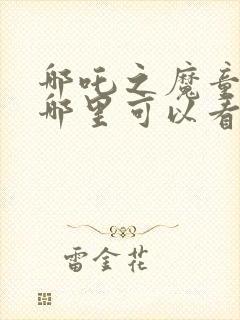 哪吒之魔童
哪里可以看
雷金花